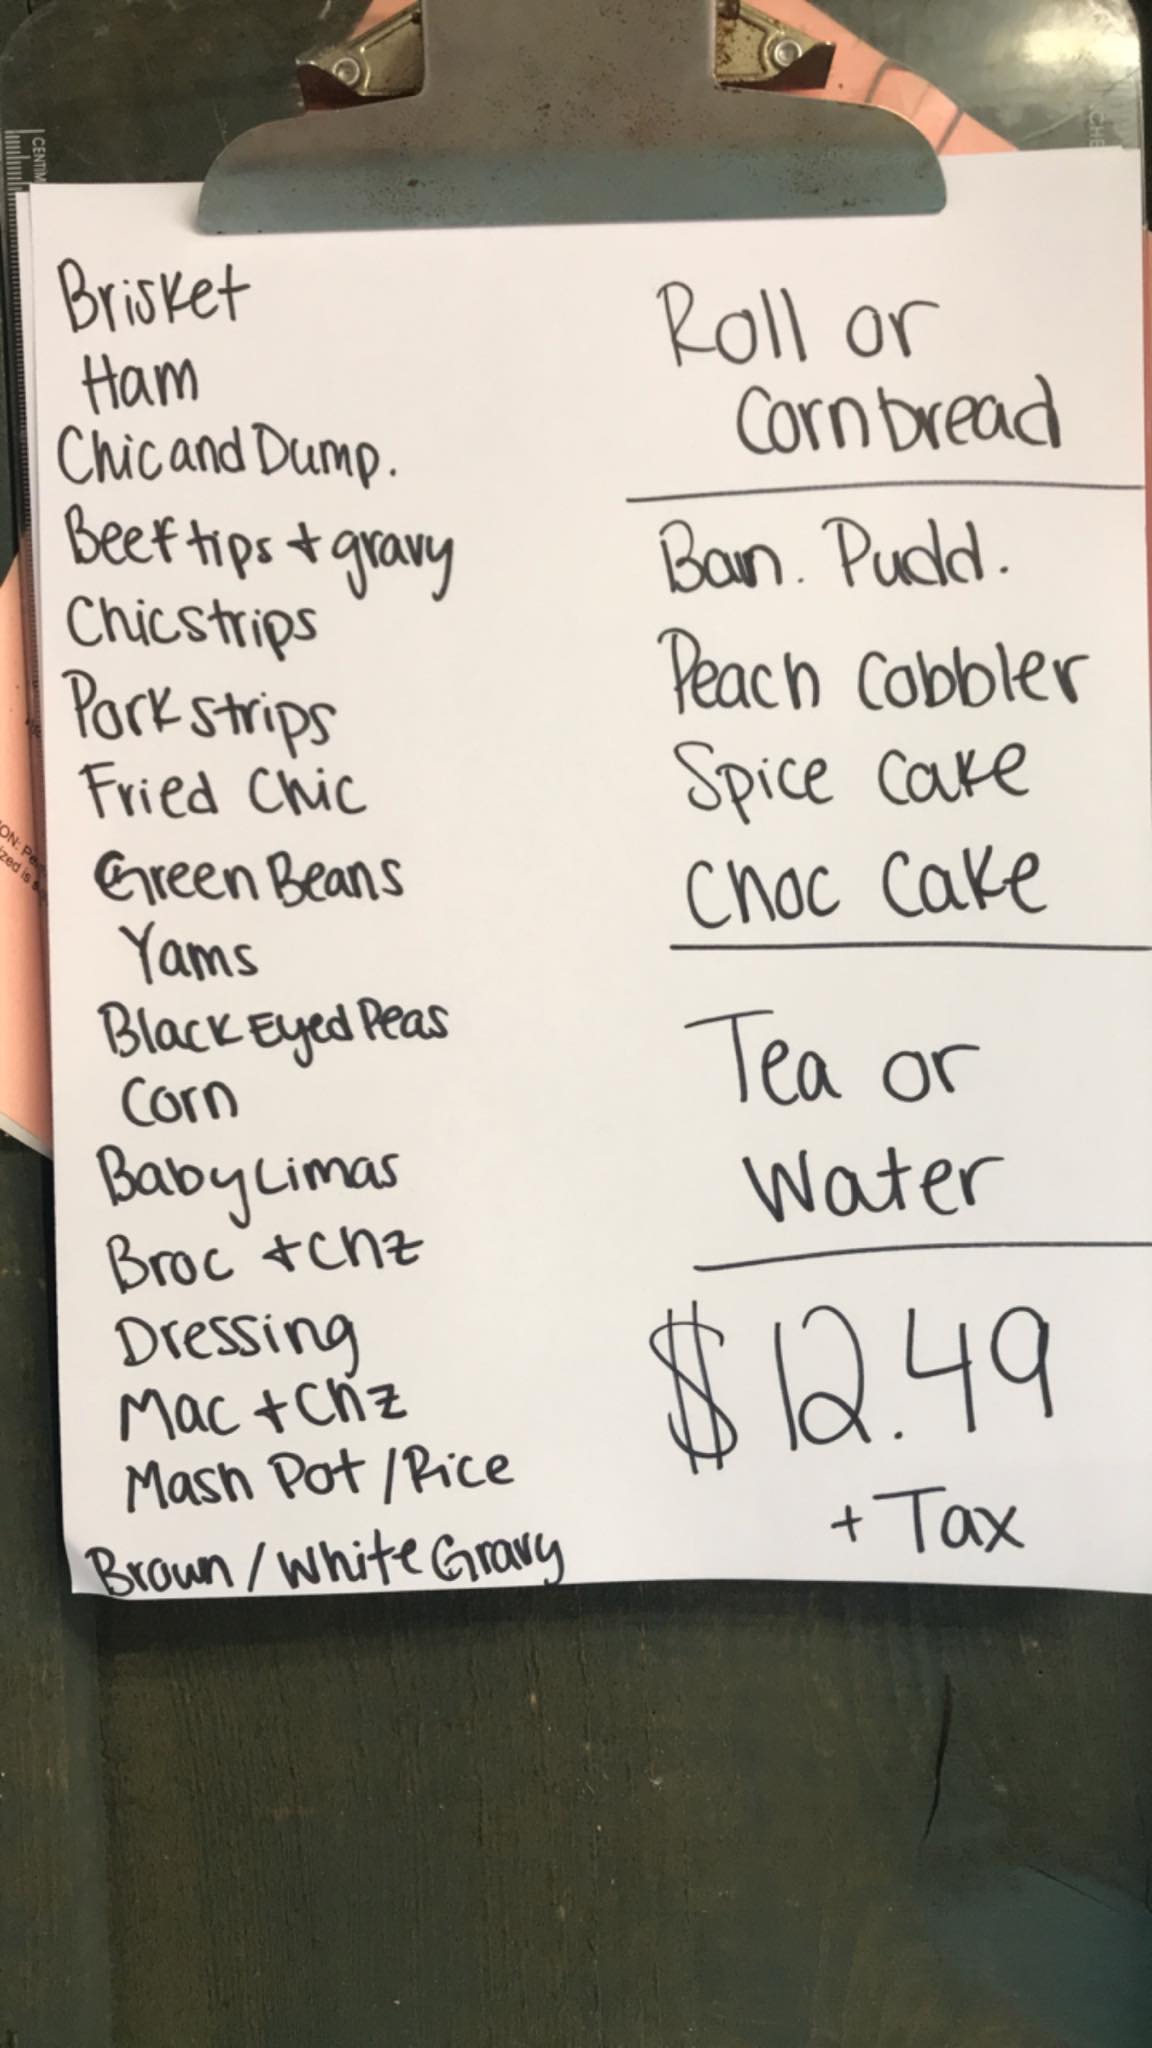 Brisket
Ham
Chic and Dump.
Beef tips + gravy
Chic strips
Pork strips
Fried Chic
Green Beans
Yams
Black Eyed Peas
Corn
Baby Limas
Broc + Chz
Dressing
Mac + Chz
Mash Pot / Rice
Brown / White Gravy
Roll or
Cornbread
Ban. Pudd.
Peach Cobbler
Spice Cake
Choc Cake
Tea or
Water
$12.49
+ Tax